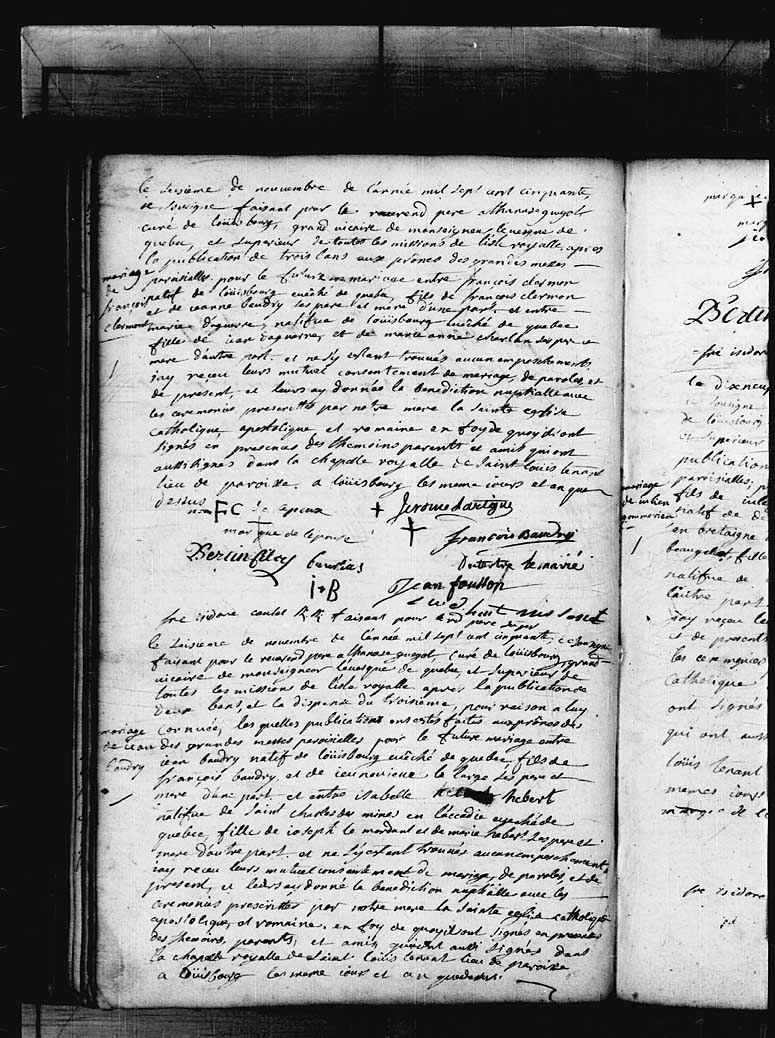 le sesieme de nouvembre de l'année mil sept cent cinquante,
je sousigné faisant pour le reverend pere athanase guegot
curé de loüisbourg, grand vicaire de monseigneur l'evesque de
quebec, et superieur de toutes les missions de l'isle royalle, apres
la publication de trois bans aux prônes des grandes messes
paroisialles pour le futur mariage entre françois clermon
natif de loüisbourg evêché de quebec, fils de françois clermon
et de jeanne baudry les pere et mere d'une part, et entre
marie daguerre, natifve de loüisbourg evêché de quebec
fille de jean daguerre, et de marie anne ses pere et
mere d'autre part, et ne s'y estant trouvés aucun empeschements
j'ay receu leurs mutuel consentement de mariage, de paroles, et
de present, et leurs ay donnée la benediction nuptialle avec
les ceremonies prescrittes par notre mere la sainte eglise
catholique, apostolique, et romaine en foy de quoy ils ont
signés en presences des themoins parents et amis qui ont
aussi signés dans la chapelle royalle de Saint louis tenant
lieu de paroisse. a loüisbourg les meme jours et an que
dessus
mariage
de
françois
clermont
FC de lepoux + Jerome dariguo
marque de lepouse + françois Baudry
Bertin fils
I+B Jean fousson
fre isidore caulet faisant pour le Rd pere
le seisieme de novembre de l'année mil sept cent cinquante, je sousigné
faisant pour le reverend pere athanase guegot curé de loüisbourg, grand
vicaire de monseigneur l'evesque de quebec, et superieur de
toutes les missions de l'isle royalle apres la publication de
deux bans, et la dispense du troisieme, pour raison a luy
connuës, lesquelles publications ont estés faites aux prônes des
des grandes messes paroisialles pour le future mariage entre
jean baudry natif de loüisbourg evêché de quebec, fils de
françois baudry, et de jenevieve le large ses pere et
mere d'une part et entre isabelle hebert
natifve de Saint Charles des mines en l'accadie evêché de
quebec, fille de joseph le mordant et de marie hebert ses pere et
mere d'autre part. et ne s'y estant trouvés aucun empeschement
j'ay receu leurs mutuel consentement de mariage, de paroles, et de
present, et leurs ay donné la benediction nuptialle avec les
ceremonies prescrittes par notre mere la sainte eglise catholique
apostolique, et romaine, en foy de quoy ils ont signés en presence
des themoins, parents, et amis qui ont aussi signés dans
la chapelle royalle de saint loüis tenant lieu de paroisse
a loüisbourg les meme jour et an que dessus.
mariage
de jean
baudry
marque
+
Bertin
fre isidore
je sousigné
de loüisbourg
et superieur
publication
paroisialles, p
fils de
natif de
en bretaigne
fille
natifve de
l'autre part
j'ay receu le
et de present
les ceremonies
Catholique
ont signés
qui ont auss
loüis tenant
memes jours
marque de le
mariage
de julien
fre isidore